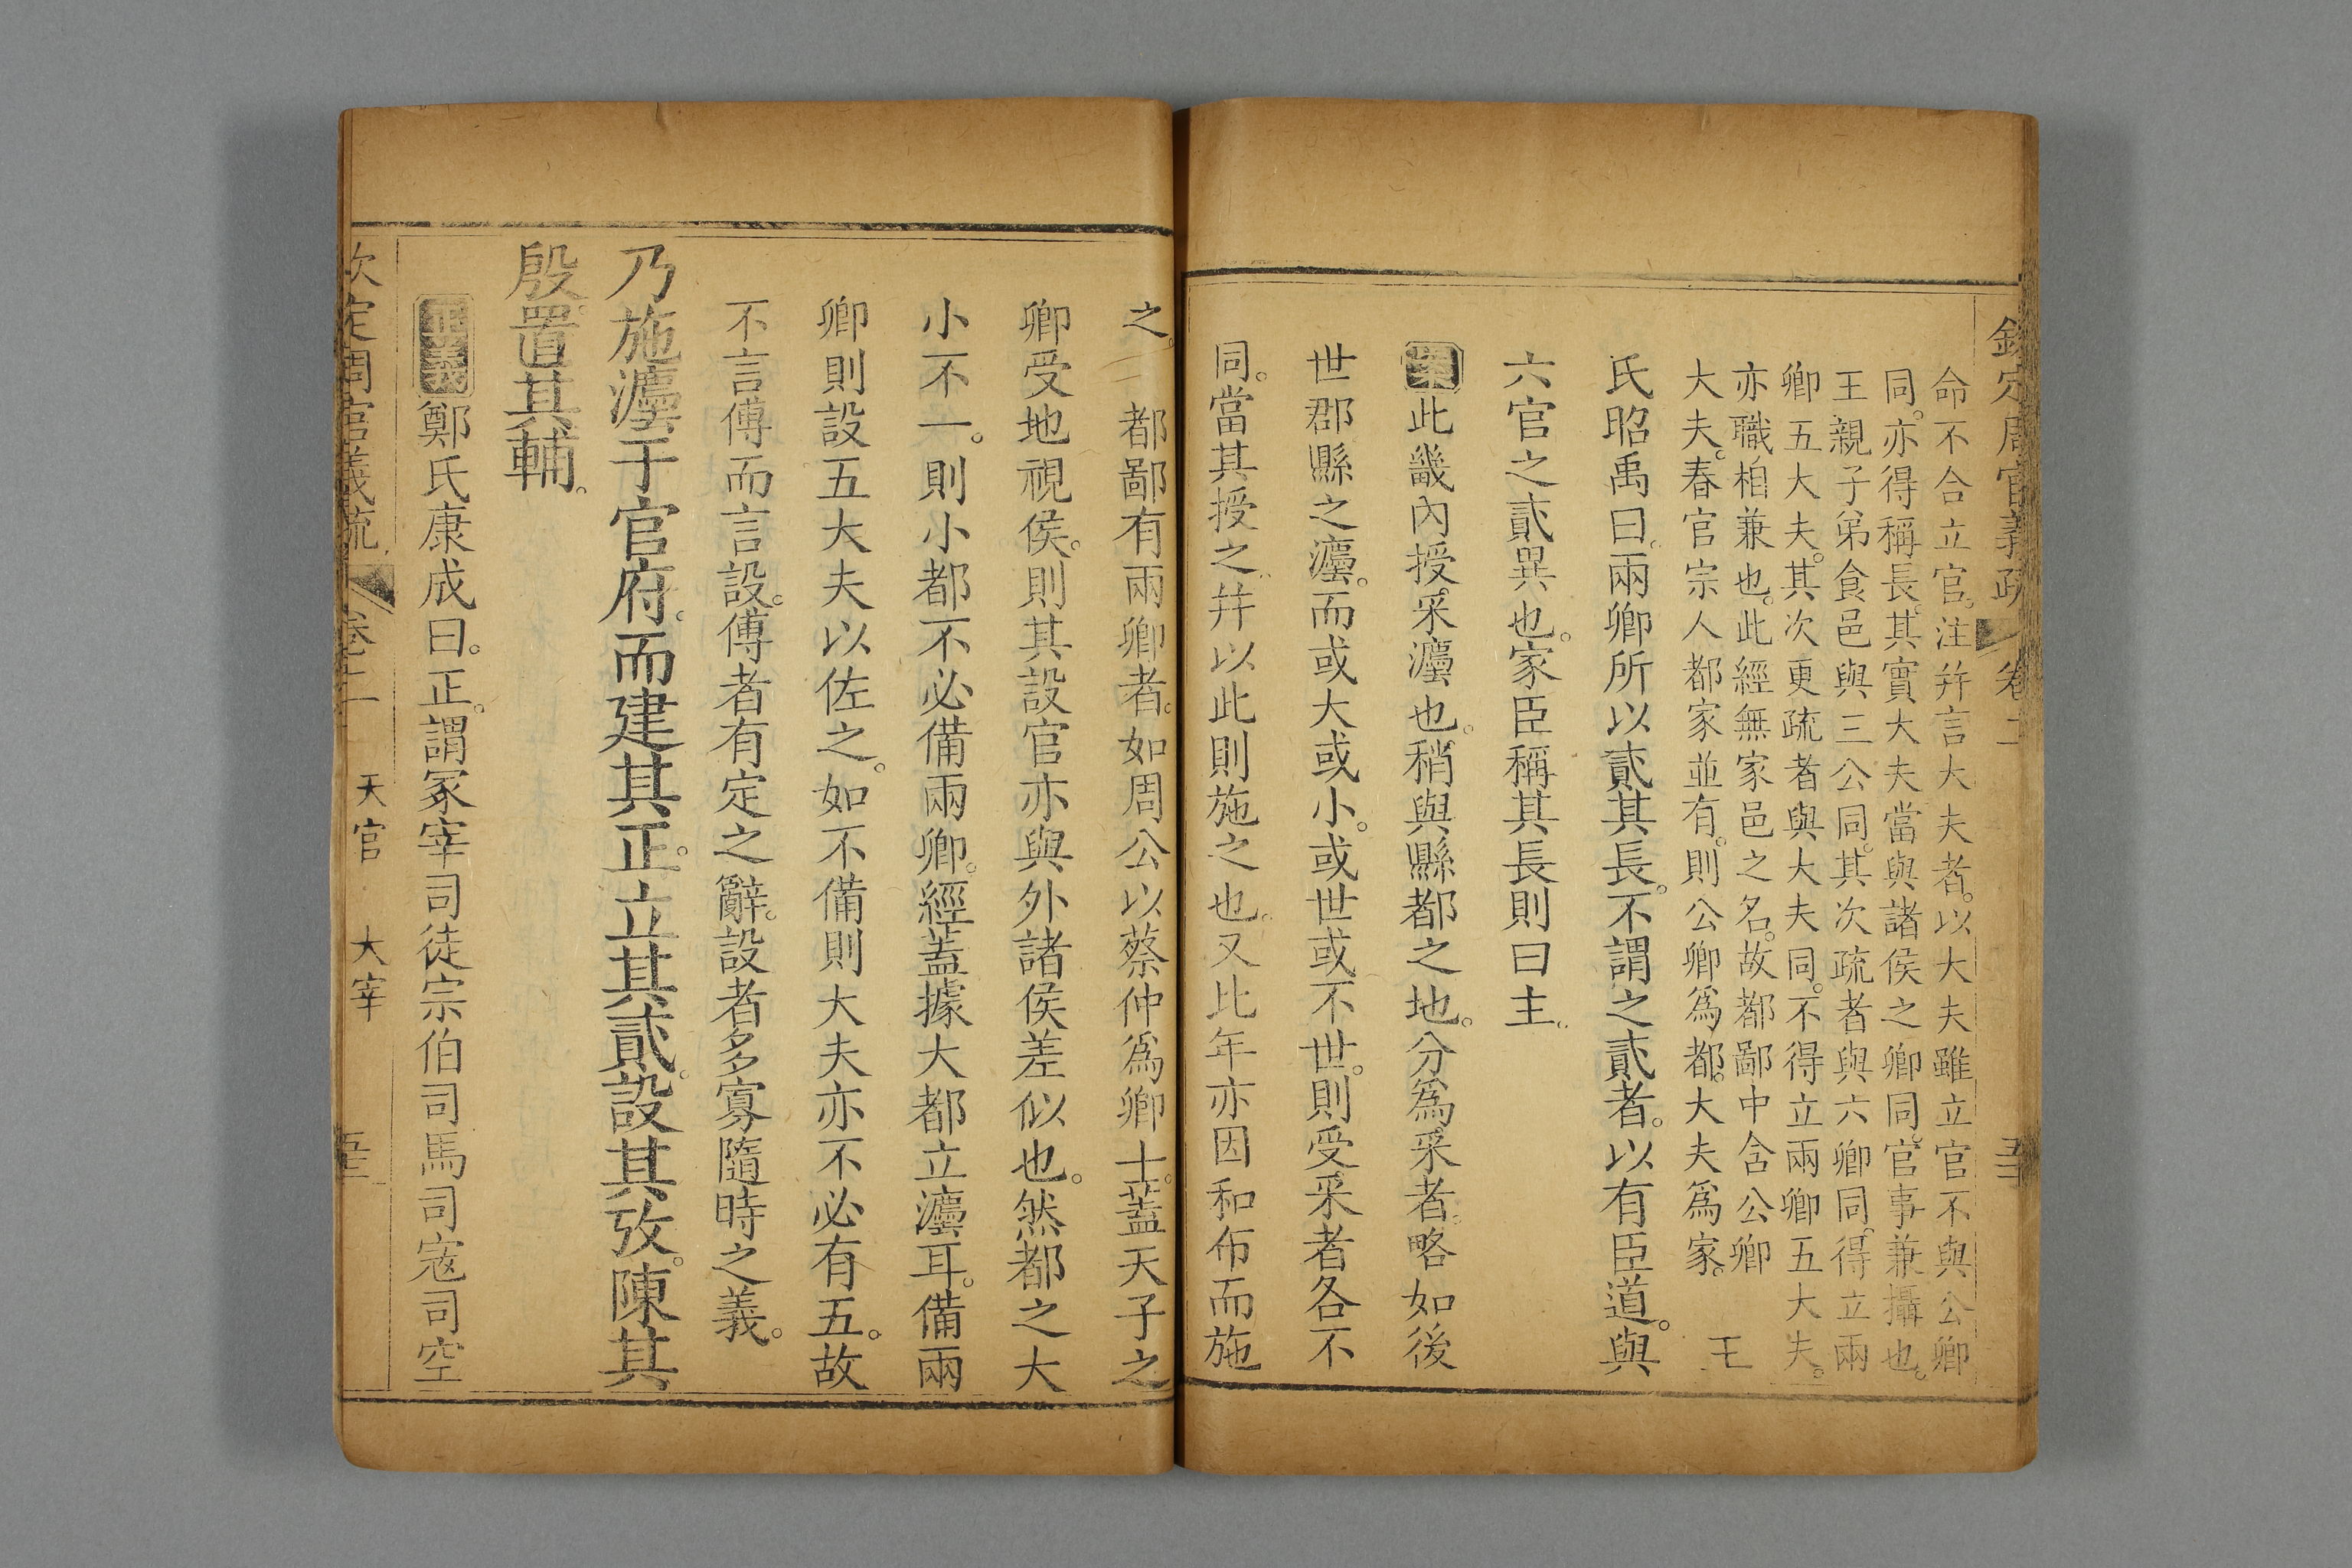 欽定周官義疏 卷二
命不合立官。注并言大夫者。以大夫雖立官不與公卿
同。亦得稱長。其實大夫當與諸侯之卿同。官事兼攝也。
王親子弟食邑與三公同。其次疏者與六卿同。得立兩
卿五大夫。其次更疏者與大夫同。不得立兩卿五大夫。
亦職相兼也。此經無家邑之名。故都鄙中含公卿
大夫。春官宗人都家並有。則公卿爲都。大夫爲家。 王
氏昭禹曰。兩卿所以貳其長。不謂之貳者。以有臣道。與
六官之貳異也。家臣稱其長則曰主。
案此畿內授采灋也。稍與縣都之地。分爲采者。略如後
世郡縣之灋。而或大或小。或世或不世。則受采者各不
同。當其授之。并以此則施之也。又比年亦因和布而施
之。 都鄙有兩卿者。如周公以蔡仲爲卿士。蓋天子之
卿受地視侯。則其設官亦與外諸侯差似也。然都之大
小不一。則小都不必備兩卿。經蓋據大都立灋耳。備兩
卿則設五大夫以佐之。如不備則大夫亦不必有五。故
不言傅而言設。傅者有定之辭。設者多寡隨時之義。
乃施灋于官府。而建其正。立其貳。設其攷。陳其
殷。置其輔。
正義鄭氏康成曰。正。謂冢宰司徒宗伯司馬司寇司空
欽定周官義疏 卷二 天官 大宰